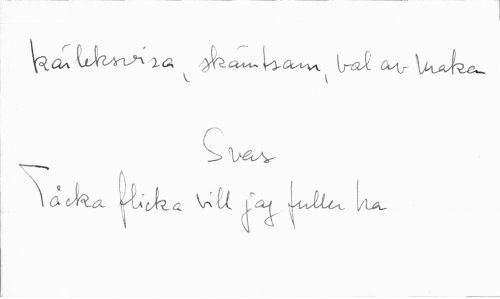 kärleksvisa, skämtsam, val av maka
Svar
Täcka flicka vill jag fuller ha